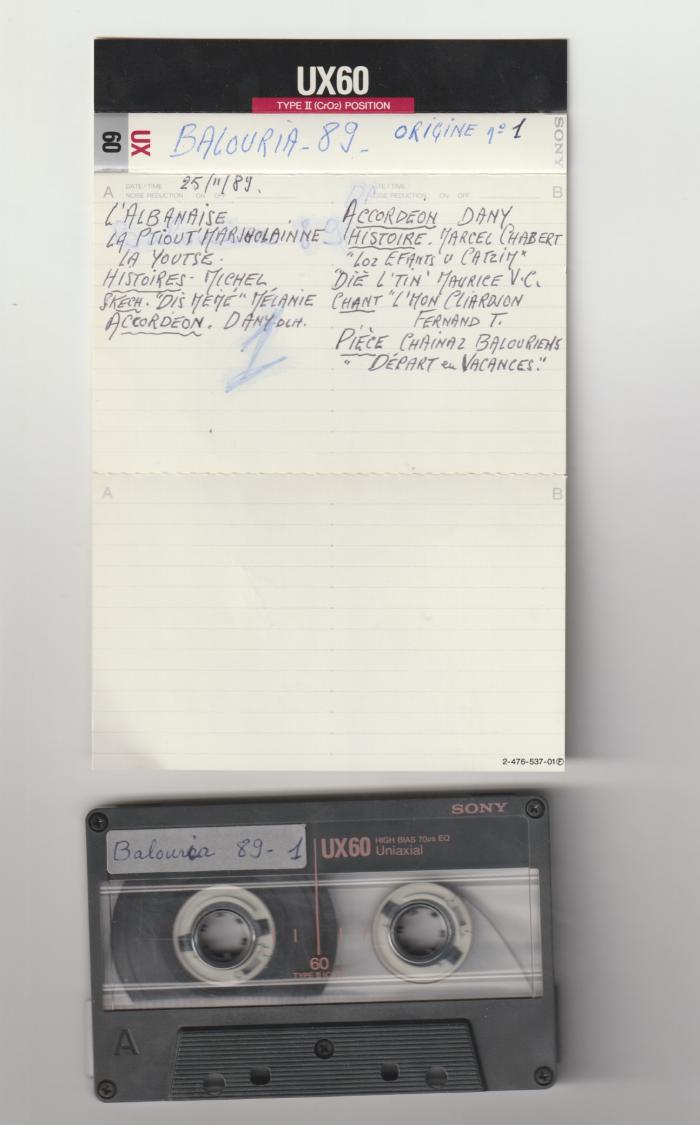 UX60
TYPE II (CrO2) POSITION
60 UX
BALOURIA - 89 - ORIGINE nº 1
SONY
A DATE/TIME 25/11/89.
NOISE REDUCTION ON OFF
L'ALBANAISE
LA PTIOUT' MARJHOLAINNE
LA YOUTSE.
HISTOIRES - MICHEL
SKECH. "DIS MÉMÉ" MÉLANIE
ACCORDEON. DANY DLH.
1
B DATE/TIME
NOISE REDUCTION ON OFF
ACCORDEON DANY
HISTOIRE. MARCEL CHABERT
"LOZ EFANTS U CATZIM"
DIÈ L'TIN' MAURICE V.C.
CHANT "L'MON CLIARDJON
FERNAND T.
PIÈCE CHAINAZ BALOURIENS
" DÉPART en VACANCES."
A B
2-476-537-01
SONY
Balouria 89 - 1
UX60 HIGH BIAS 70µs EQ
Uniaxial
60
TYPE II
A